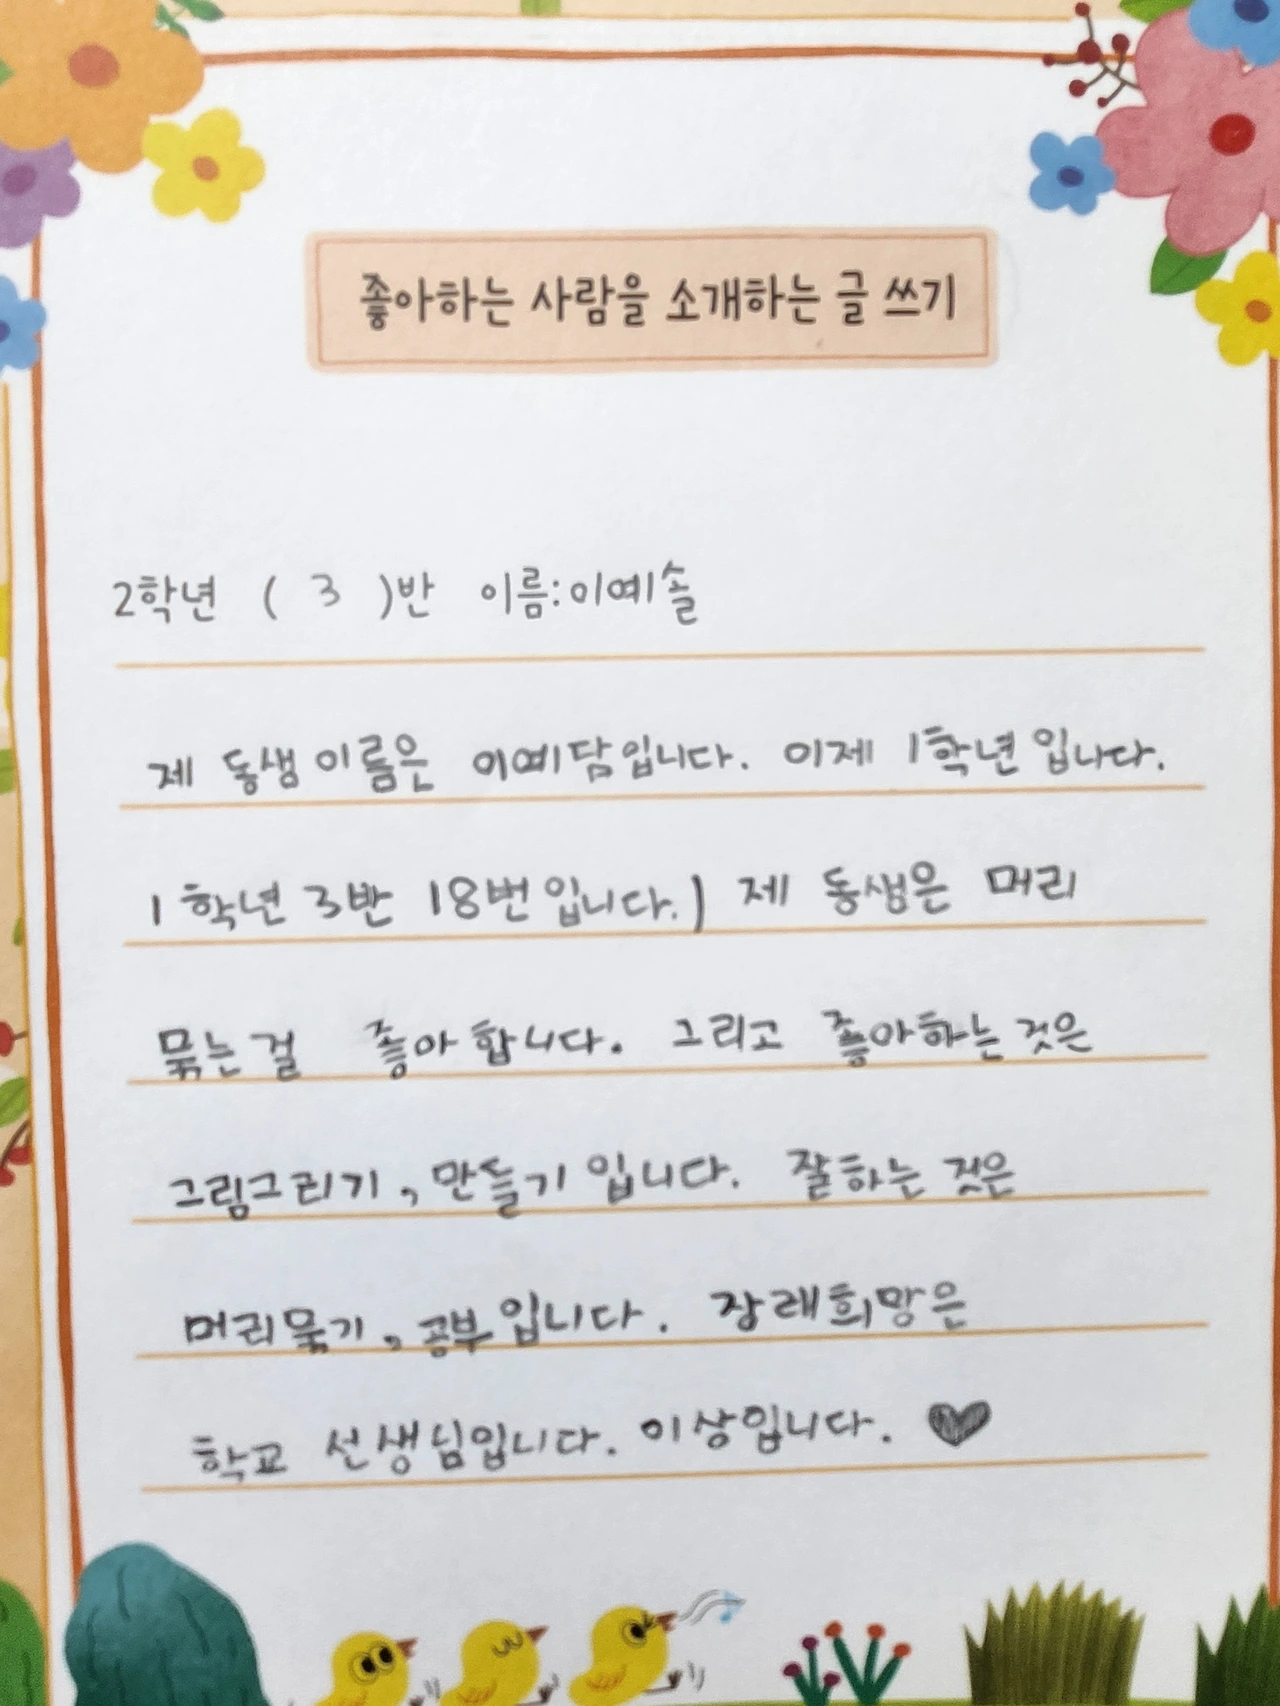 좋아하는 사람을 소개하는 글 쓰기
2학년 ( 3 )반 이름:이예솔
제 동생 이름은 이예담입니다. 이제 1학년입니다.
1학년 3반 18번입니다.) 제 동생은 머리
묶는걸 좋아합니다. 그리고 좋아하는것은
그림그리기, 만들기입니다. 잘하는 것은
머리묶기, 공부입니다. 장래희망은
학교 선생님입니다. 이상입니다. ♥